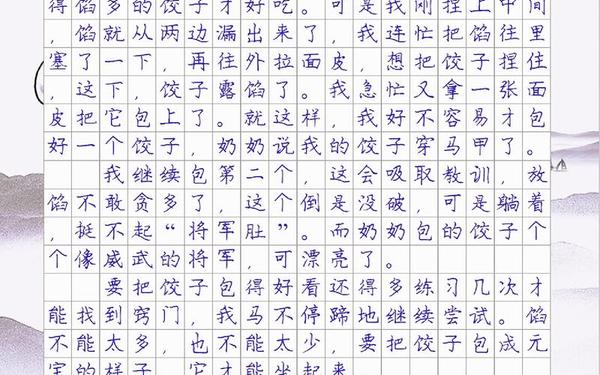 得馅多的饺子才好吃。可是我刚捏上中间
，馅就从两边漏出来了，我连忙把馅往里
塞了一下，再往外拉面皮，想把饺子捏住
，这下，饺子露馅了。我急忙又拿一张面
皮把它包上了。就这样，我好不容易才包
好一个饺子，奶奶说我的饺子穿马甲了。
我继续包第二个，这会吸取教训，放
馅不敢贪多了，这个倒是没破，可是躺着
，挺不起“将军肚”。而奶奶包的饺子个
个像威武的将军，可漂亮了。
要把饺子包得好看还得多练习几次才
能找到窍门，我马不停蹄地继续尝试。馅
不能太多，也不能太少，要把饺子包成元
宝的样子，它才能坐起来